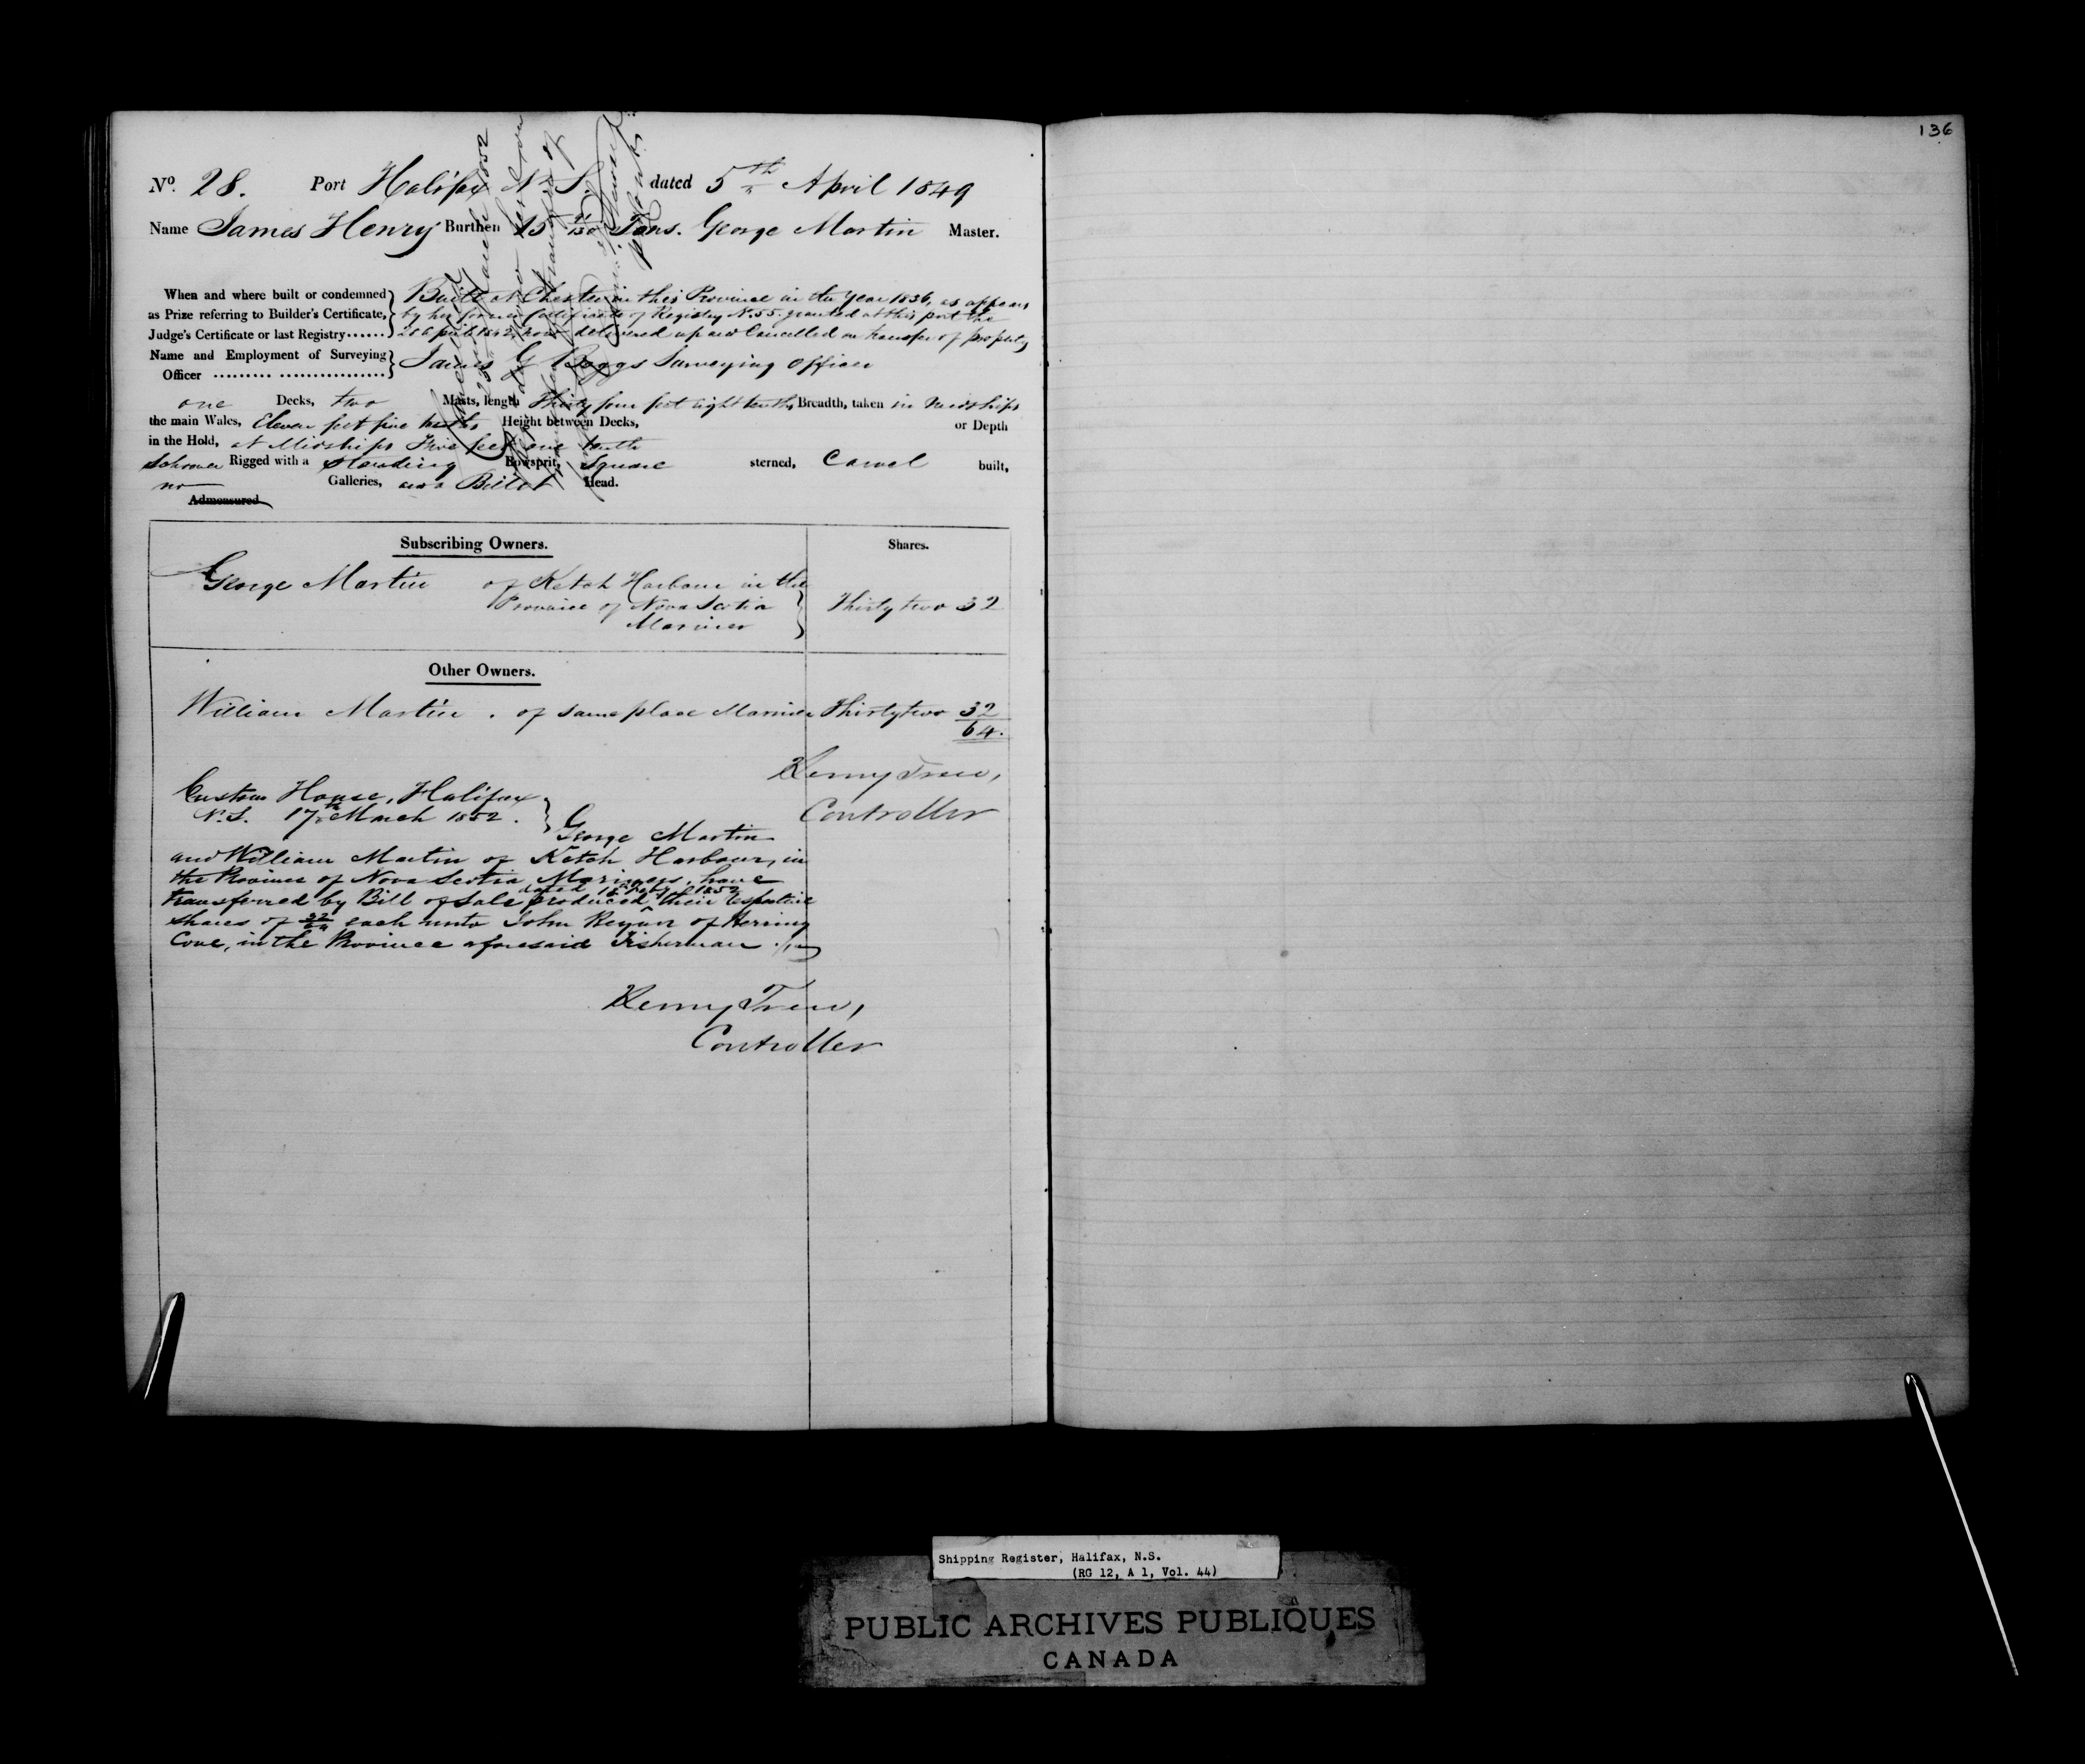 136
No. 28. Port Halifax N. S. dated 5th April 1849
Name James Henry Burthen 15 /130 Tons. George Martin Master.
When and where built or condemned } Built at Chester in this Province in the Year 1836, as appears
as Prize referring to Builder's Certificate, by her former Certificate of Registry No. 55. granted at this port the
Judge's Certificate or last Registry...... 20 April 1842, now delivered up and Cancelled on transfer of property
Name and Employment of Surveying } James G Boggs Surveying Officer
Officer ......... ................
one Decks, two Masts, length Thirty four feet eight tenths Breadth, taken in Midships
the main Wales, Eleven feet five tenths Height between Decks, or Depth
in the Hold, at Midships Five feet one tenth
Schooner Rigged with a Standing Bowsprit, Square sterned, Carvel built,
no Galleries, and a Billet Head.
Admeasured
Subscribing Owners. Shares.
George Martin of Ketch Harbour in the
Province of Nova Scotia } Thirty two 32
Mariner
Other Owners.
William Martin . of same place Mariner Thirty two 32
64.
Henry Trew,
Controller
Custom House, Halifax
N.S. 17th March 1852. }
George Martin
and William Martin of Ketch Harbour, in
the Province of Nova Scotia, Mariners, have
dated 1852
transferred by Bill of Sale produced their respective
shares of 32/64 each unto John Reyan of Herring
Cove, in the Province aforesaid Fisherman
Henry Trew,
Controller
Shipping Register, Halifax, N.S.
(RG 12, A 1, Vol. 44)
PUBLIC ARCHIVES PUBLIQUES
CANADA